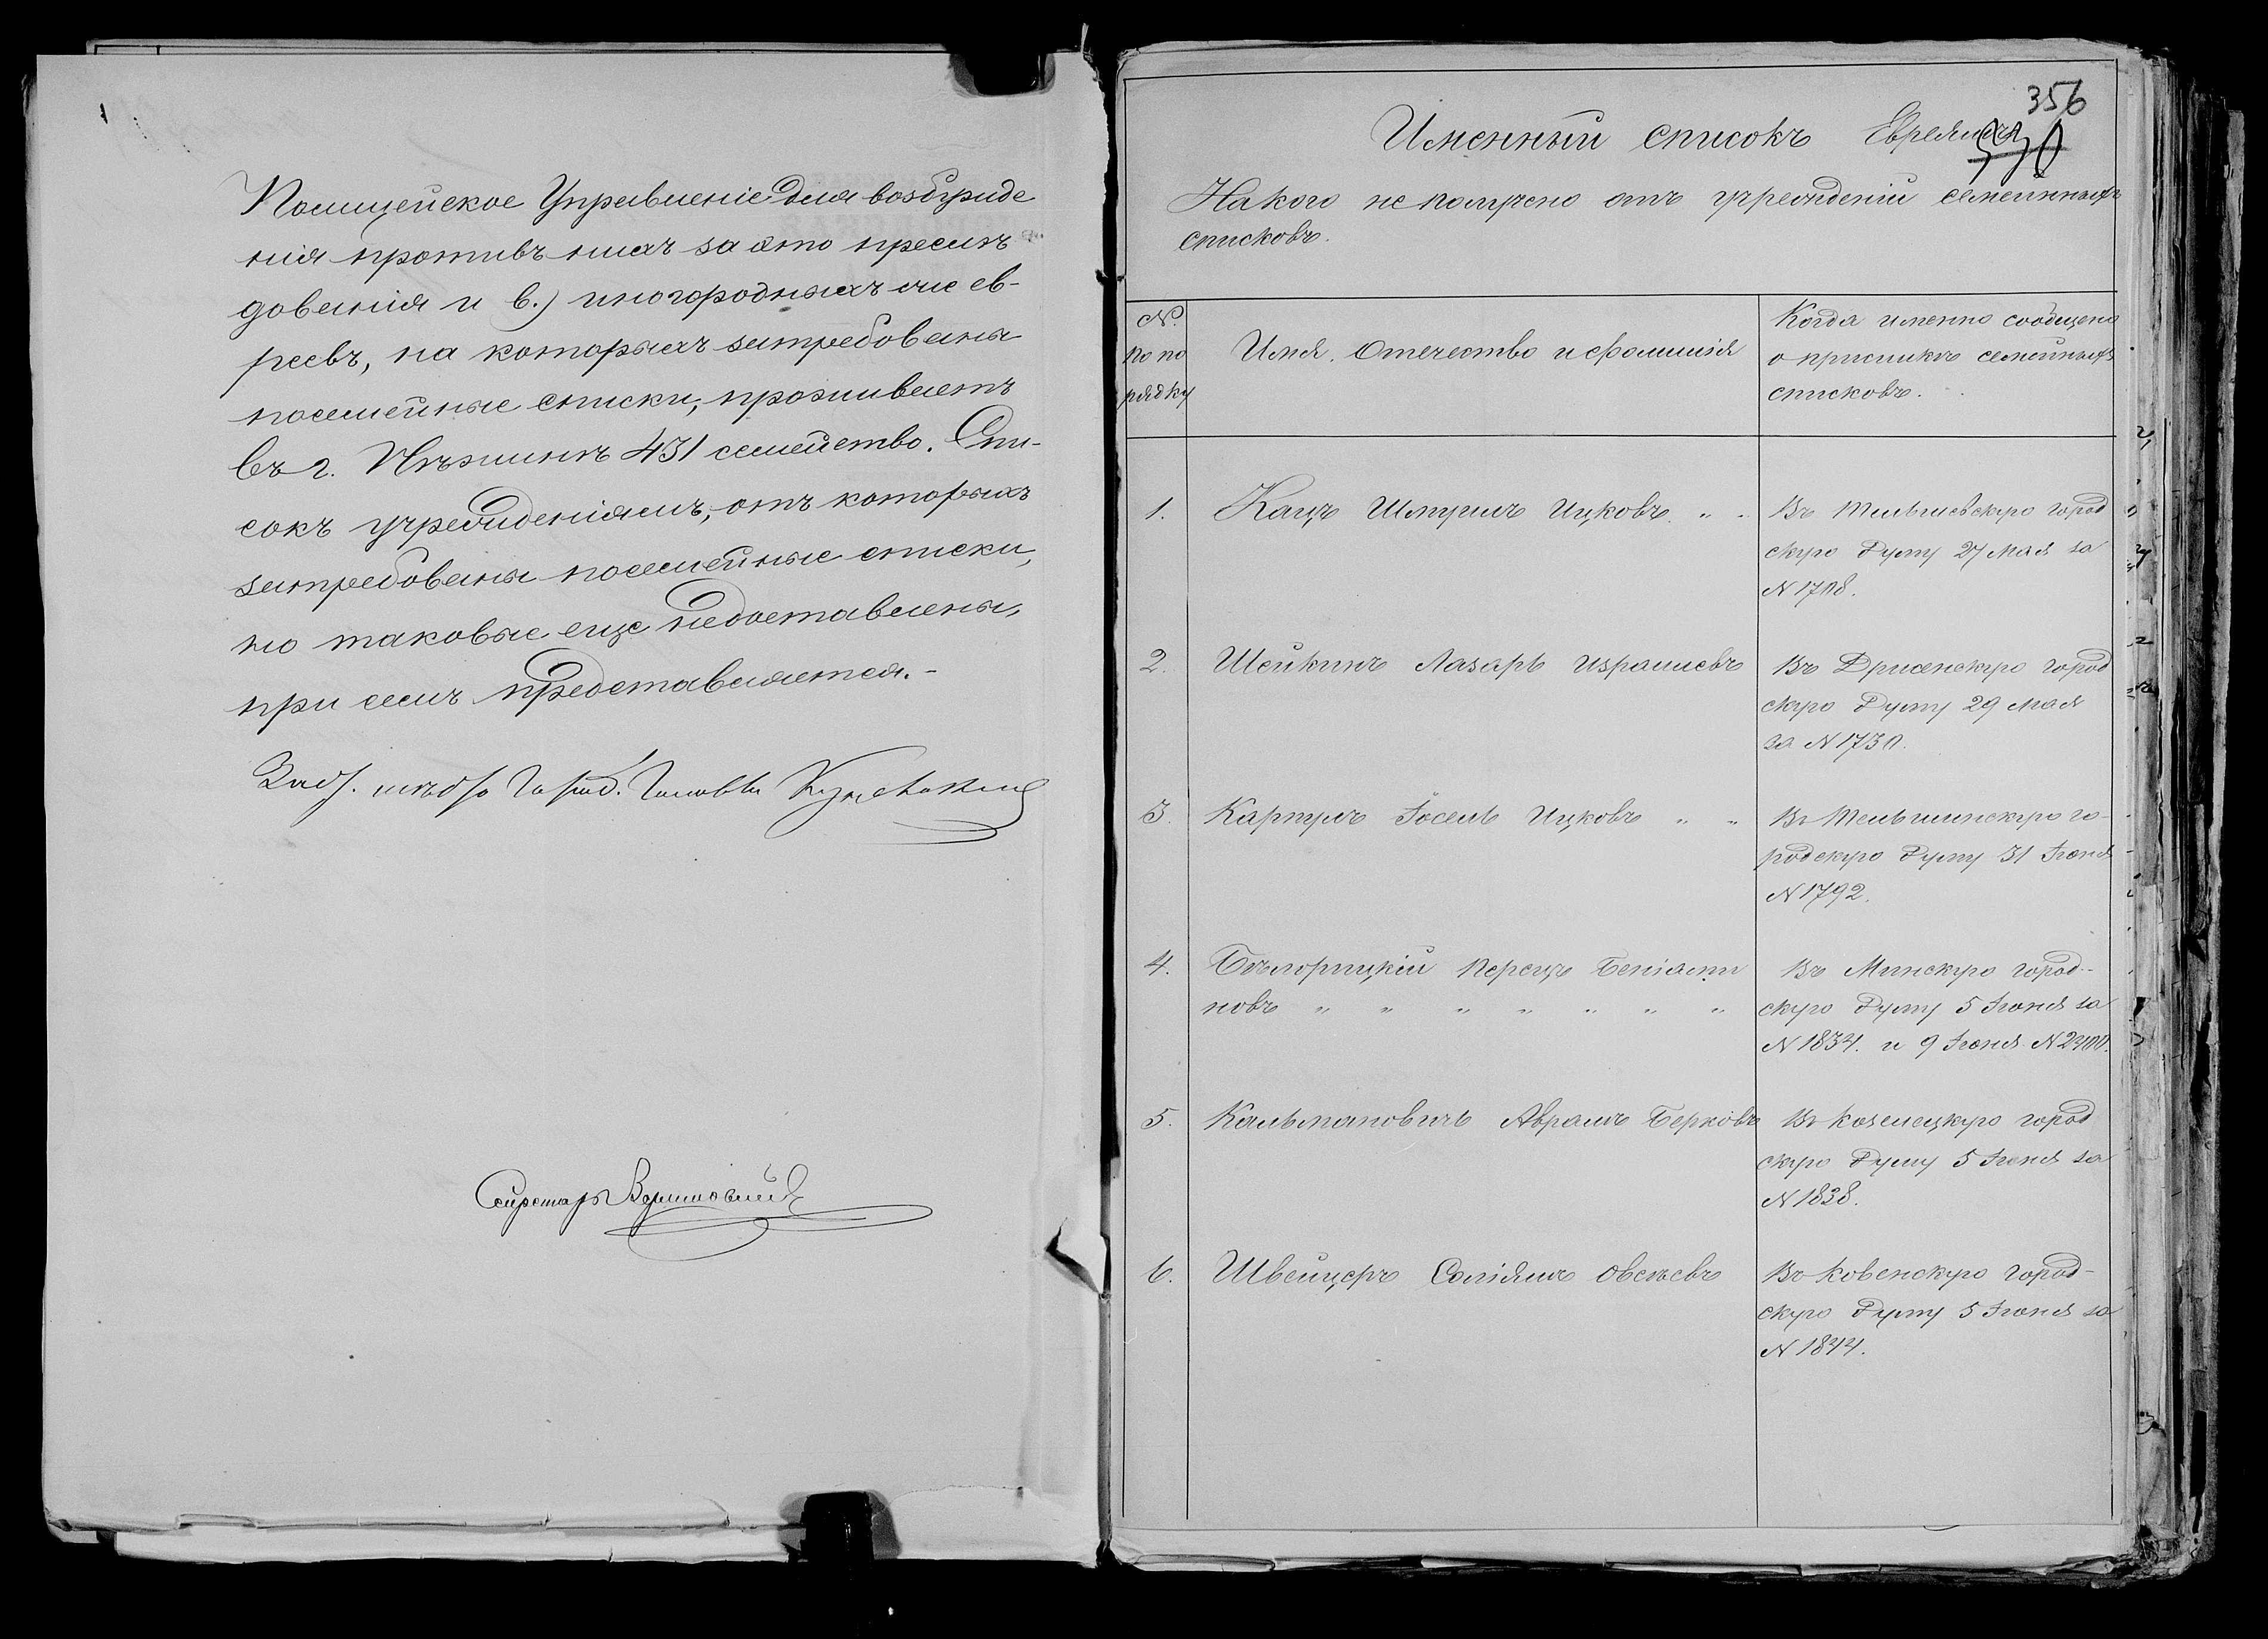 Полицейское Управленіе для возбужде
нія противъ нихъ за это преслѣ
дованія и в.) иногородныхъ же ев-
реевъ, на которыхъ затребованы
посемейные списки, проживаетъ
въ г. Нѣжинѣ 431 семейство. Спи-
сокъ учрежденіямъ, отъ которыхъ
затребованы посемейные списки,
но таковые еще недоставлены,
при семъ представляется.-
Город. Головы
Секретарь
356
Именный списокъ Евреямъ
На кого не получено отъ учрежденій семейныхъ
списковъ.
№.
по по
рядку
Имя, Отчество и фамилія
Когда именно сообщено
о присылкѣ семейныхъ
списковъ.
1. Кацъ Шмуилъ Ицковъ " " Въ Тельшевскую город
скую Думу 27 Мая за
N 1708.
2. Шейкинъ Лазарь Израилевъ Въ Дрисенскую город
скую Думу 29 Мая
за N 1730.
3. Картунъ Іосель Ицковъ " " Въ Тельшинскую го-
родскую Думу 31 Іюня
N 1792.
4. Бѣлоруцкій Перецъ Беніами Въ Минскую город-
новъ " " " " " " " скую Думу 5 Іюня за
N 1834. и 9 Іюня N 2400.
5. Кальмановичъ Абрамъ Берковъ Въ Козелецкую город
скую Думу 5 Іюня за
N 1838.
6. Швейцеръ Соліямъ Овсѣевъ Въ Ковенскую город-
скую Думу 5 Іюня за
N 1844.